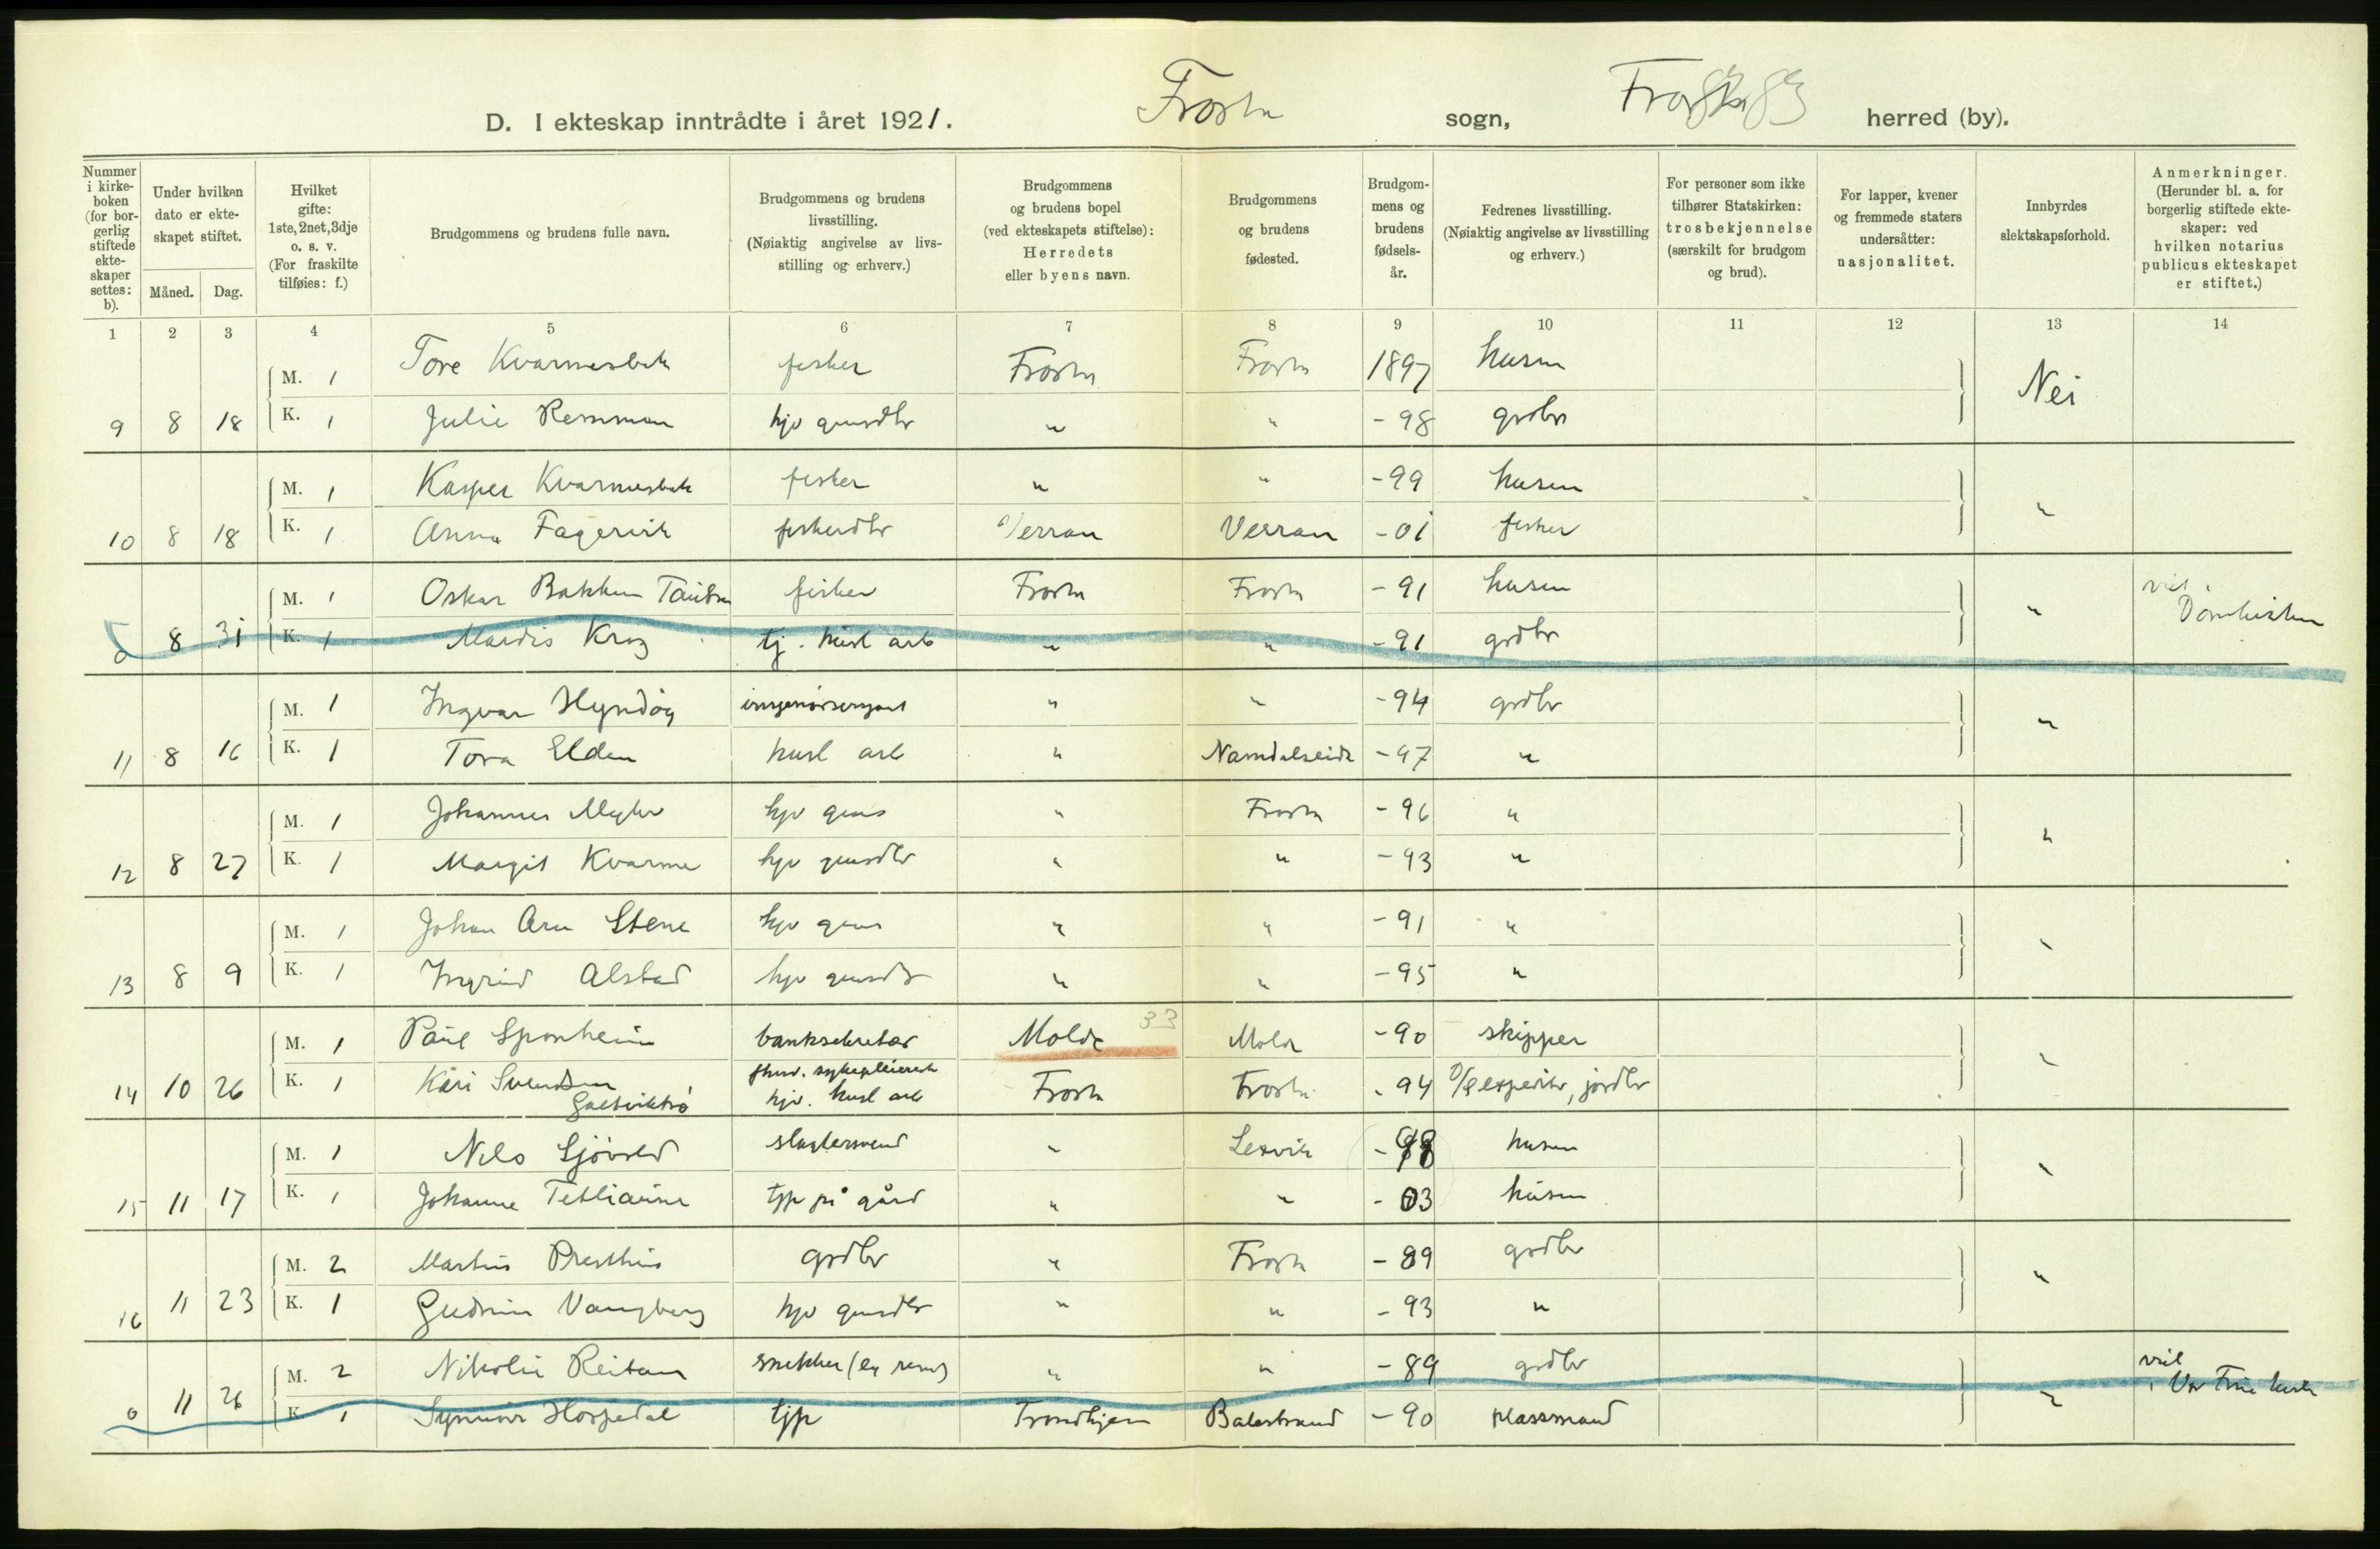 D. I ekteskap inntrådte i året 1921. Frosta sogn, Frosta herred (by).
Nummer i kirkeboken (for borgerlig stiftede ekteskaper settes: b).
Under hvilken dato er ekteskapet stiftet.
Måned. Dag.
Hvilket gifte: 1ste, 2net, 3dje o. s. v. (For fraskilte tilføies: f.)
Brudgommens og brudens fulle navn.
Brudgommens og brudens livsstilling. (Nøiaktig angivelse av livsstilling og erhverv.)
Brudgommens og brudens bopel (ved ekteskapets stiftelse): Herredets eller byens navn.
Brudgommens og brudens fødested.
Brudgommens og brudens fødselsår.
Fedrenes livsstilling. (Nøiaktig angivelse av livsstilling og erhverv.)
For personer som ikke tilhører Statskirken: trosbekjennelse (særskilt for brudgom og brud).
For lapper, kvener og fremmede staters undersåtter: nasjonalitet.
Innbyrdes slektskapsforhold.
Anmerkninger. (Herunder bl. a. for borgerlig stiftede ekteskaper: ved hvilken notarius publicus ekteskapet er stiftet.)
1 2 3 4 5 6 7 8 9 10 11 12 13 14
M. 1 Tore Kvarmesbak fisker Frosta Frosta 1897 husm Nei
9 8 18 K. 1 Julie Remman hjv grmsdtr " " -98 grdbr
M. 1 Kasper Kvarmesbak fisker " " -99 husm "
10 8 18 K. 1 Anna Fagervik fiskerdtr Verran Verran -01 fisker
M. 1 Oskar Bakken fisker Frosta Frosta -91 husm " viet i
0 8 31 K. 1 Mardis Krog tj. husl arb " " -91 grdbr Domkirken
M. 1 Ingvar Hyndøy " " -94 grdbr "
11 8 16 K. 1 Tora Elden husl arb " Namdalseide -97 "
M. 1 Johannes Myhr hjv grms " Frosta -96 " "
12 8 27 K. 1 Margit Kvarme hjv grmsdtr " " -93 "
M. 1 Johan Arn Stene hjv grms " " -91 " "
13 8 9 K. 1 Ingrid Alstad hjv grmsdtr " " -95 "
M. 1 Paul Sponheim banksekretær Molde 33 Molde -90 skipper "
14 10 26 K. 1 Kari Svendsen sykepleierske
hjv. husl arb Frosta Frosta -94 D/S expeditør, jordbr
M. 1 Nils Sjøvold slaktersvend " Leksvik -98 husm "
15 11 17 K. 1 Johanne Tetliaune tjp på gård " " -03 husm
M. 2 Martin Presthus grdbr " Frosta -89 grdbr "
16 11 23 K. 1 Gudrun Vangberg hjv grmsdtr " " -93 "
M. 2 Nikolai Reitan snekker " " -89 grdbr " viet
0 11 26 K. 1 Synnøve Hospedal tjp Trondhjem Balestrand -90 plassmand i Vor Frue kirke